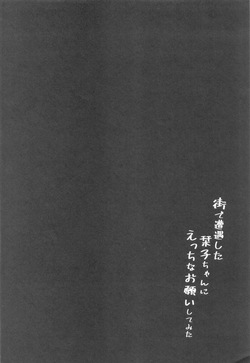 街で遭遇した
栞子ちゃんに
えっちなお願いしてみた